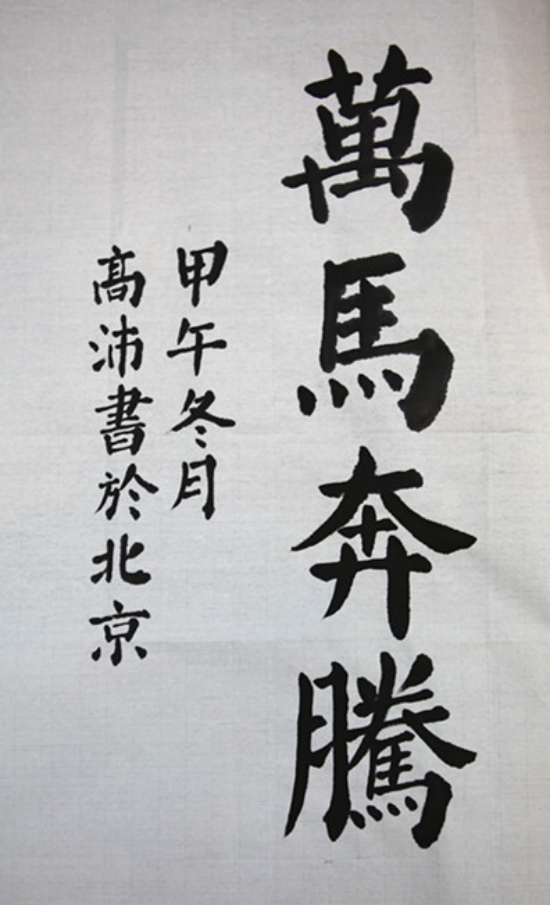 萬馬奔騰
甲午冬月
高沛書於北京